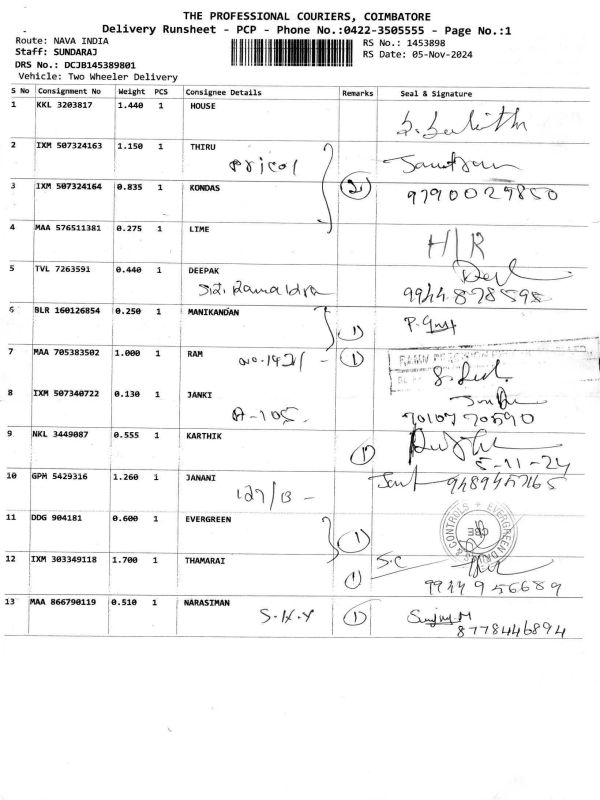 THE PROFESSIONAL COURIERS, COIMBATORE
Delivery Runsheet - PCP - Phone No.:0422-3505555 - Page No.:1
Route: NAVA INDIA
RS No.: 1453898
Staff: SUNDARAJ
RS Date: 05-Nov-2024
DRS No.: DCJB145389801
Vehicle: Two Wheeler Delivery
S No Consignment No Weight PCS Consignee Details Remarks Seal & Signature
1 KKL 3203817 1.440 1 HOUSE
2 IXM 507324163 1.150 1 THIRU
Pricol
3 IXM 507324164 0.835 1 KONDAS 2
9790029850
4 MAA 576511381 0.275 1 LIME H/R
5 TVL 7263591 0.440 1 DEEPAK
9944878598
6 BLR 160126854 0.250 1 MANIKANDAN 1
7 MAA 705383502 1.000 1 RAM 1
8 IXM 507340722 0.130 1 JANKI
A-105 7010770590
9 NKL 3449087 0.555 1 KARTHIK 1 5-11-24
10 GPM 5429316 1.260 1 JANANI 9489457165
127/B -
11 DDG 904181 0.600 1 EVERGREEN 1
12 IXM 303349118 1.700 1 THAMARAI S.C
1 9944956689
13 MAA 866790119 0.510 1 NARASIMAN
S.H.Y 1 8778446894